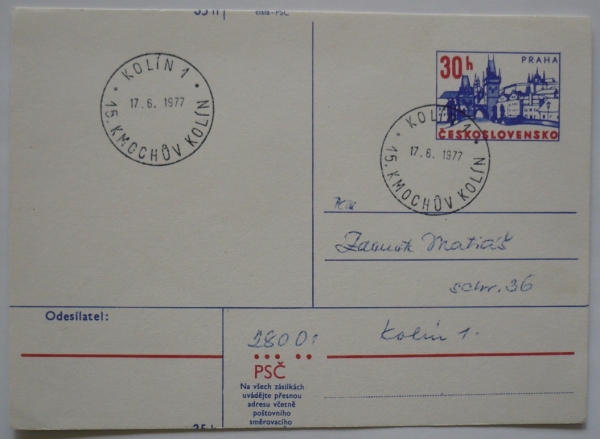 35 h
KOLÍN 1
17.6.1977
15. KMOCHŮV KOLÍN
30h
PRAHA
ČESKOSLOVENSKO
KOLÍN 1
17.6.1977
15. KMOCHŮV KOLÍN
Zdeněk Matiáš
schr. 36
Odesílatel:
280 01
Kolín 1.
PSČ
Na všech zásilkách
uvádějte přesnou
adresu včetně
poštovního
směrovacího
35 h